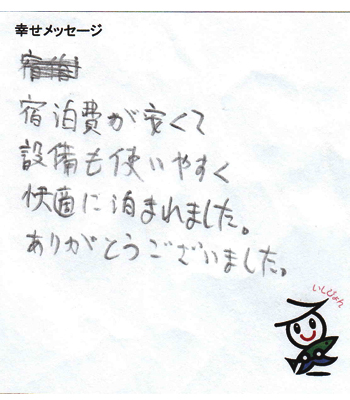 幸せメッセージ
宿泊費が安くて
設備も使いやすく
快適に泊まれました。
ありがとうございました。
いしぴょん